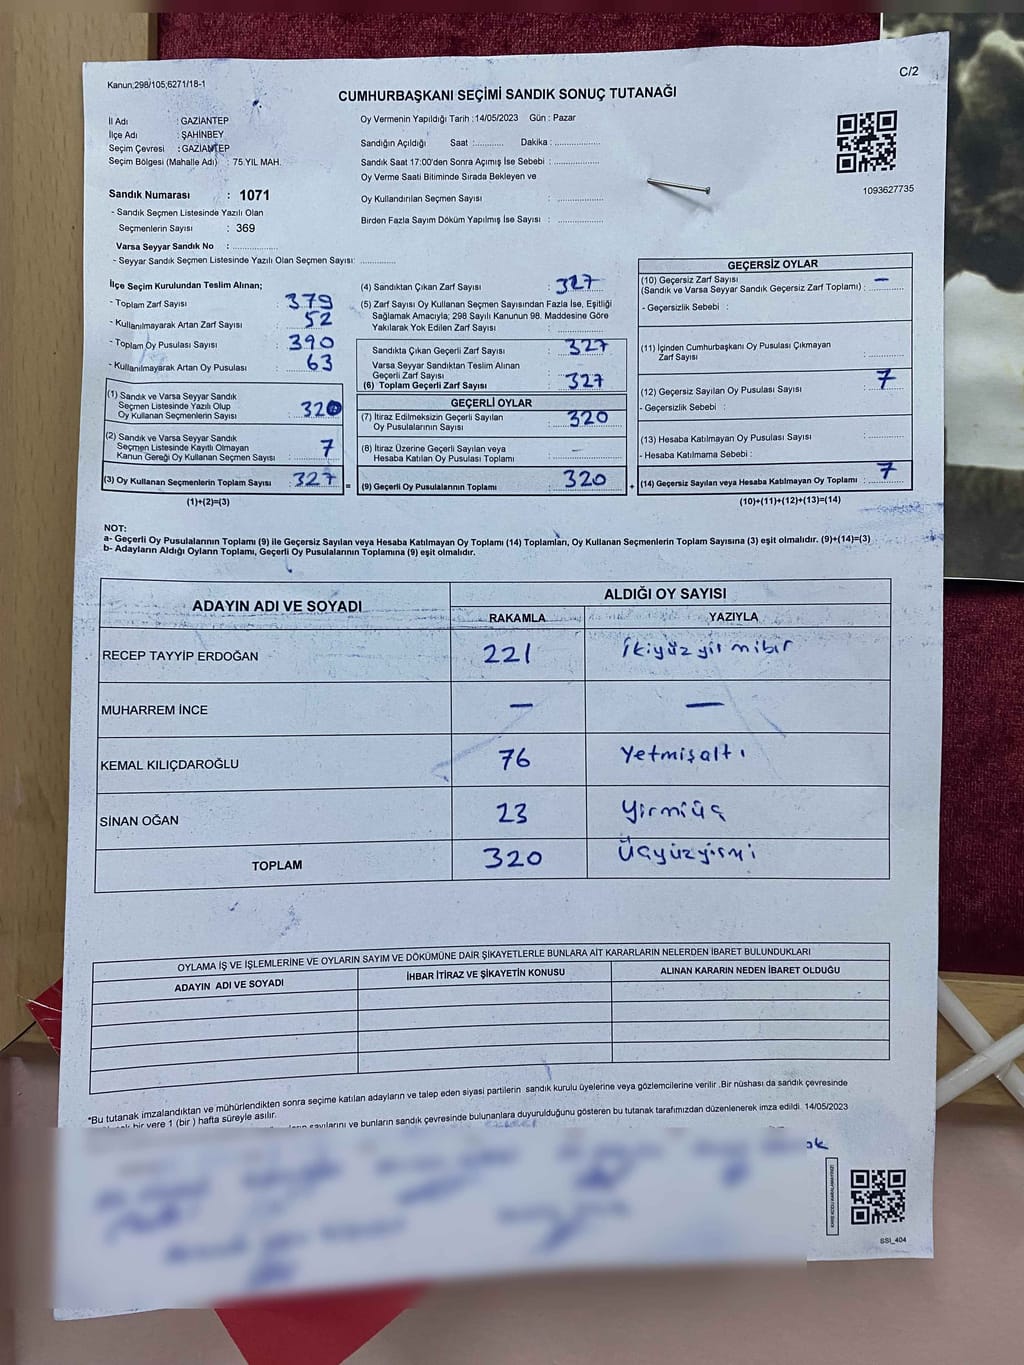 Kanun;298/105;6271/18-1
C/2
CUMHURBAŞKANI SEÇİMİ SANDIK SONUÇ TUTANAĞI
İl Adı : GAZİANTEP
İlçe Adı : ŞAHİNBEY
Seçim Çevresi : GAZİANTEP
Seçim Bölgesi (Mahalle Adı) : 75.YIL MAH.
Sandık Numarası : 1071
- Sandık Seçmen Listesinde Yazılı Olan
Seçmenlerin Sayısı : 369
Varsa Seyyar Sandık No : ..............
- Seyyar Sandık Seçmen Listesinde Yazılı Olan Seçmen Sayısı: ............
Oy Vermenin Yapıldığı Tarih :14/05/2023 Gün : Pazar
Sandığın Açıldığı Saat :.......... Dakika : ..............
Sandık Saat 17:00'den Sonra Açımış İse Sebebi : ..............
Oy Verme Saati Bitiminde Sırada Bekleyen ve
Oy Kullandırılan Seçmen Sayısı : ..............
Birden Fazla Sayım Döküm Yapılmış İse Sayısı : ..............
1093627735
İlçe Seçim Kurulundan Teslim Alınan;
- Toplam Zarf Sayısı : 379
- Kullanılmayarak Artan Zarf Sayısı : 52
- Toplam Oy Pusulası Sayısı : 390
- Kullanılmayarak Artan Oy Pusulası : 63
(1) Sandık ve Varsa Seyyar Sandık
Seçmen Listesinde Yazılı Olup
Oy Kullanan Seçmenlerin Sayısı : 320
(2) Sandık ve Varsa Seyyar Sandık
Seçmen Listesinde Kayıtlı Olmayan
Kanun Gereği Oy Kullanan Seçmen Sayısı : 7
(3) Oy Kullanan Seçmenlerin Toplam Sayısı : 327 =
(1)+(2)=(3)
(4) Sandıktan Çıkan Zarf Sayısı : 327
(5) Zarf Sayısı Oy Kullanan Seçmen Sayısından Fazla İse, Eşitliği
Sağlamak Amacıyla; 298 Sayılı Kanunun 98. Maddesine Göre
Yakılarak Yok Edilen Zarf Sayısı : ..............
Sandıkta Çıkan Geçerli Zarf Sayısı : 327
Varsa Seyyar Sandıktan Teslim Alınan
Geçerli Zarf Sayısı :
(6) Toplam Geçerli Zarf Sayısı : 327
GEÇERLİ OYLAR
(7) İtiraz Edilmeksizin Geçerli Sayılan
Oy Pusulalarının Sayısı : 320
(8) İtiraz Üzerine Geçerli Sayılan veya
Hesaba Katılan Oy Pusulası Toplamı : –
(9) Geçerli Oy Pusulalarının Toplamı : 320 +
GEÇERSİZ OYLAR
(10) Geçersiz Zarf Sayısı
(Sandık ve Varsa Seyyar Sandık Geçersiz Zarf Toplamı) : –
- Geçersizlik Sebebi :
(11) İçinden Cumhurbaşkanı Oy Pusulası Çıkmayan
Zarf Sayısı : ..........
(12) Geçersiz Sayılan Oy Pusulası Sayısı : 7
- Geçersizlik Sebebi :
(13) Hesaba Katılmayan Oy Pusulası Sayısı : ..........
- Hesaba Katılmama Sebebi :
(14) Geçersiz Sayılan veya Hesaba Katılmayan Oy Toplamı : 7
(10)+(11)+(12)+(13)=(14)
NOT:
a- Geçerli Oy Pusulalarının Toplamı (9) ile Geçersiz Sayılan veya Hesaba Katılmayan Oy Toplamı (14) Toplamları, Oy Kullanan Seçmenlerin Toplam Sayısına (3) eşit olmalıdır. (9)+(14)=(3)
b- Adayların Aldığı Oyların Toplamı, Geçerli Oy Pusulalarının Toplamına (9) eşit olmalıdır.
ADAYIN ADI VE SOYADI
ALDIĞI OY SAYISI
RAKAMLA YAZIYLA
RECEP TAYYİP ERDOĞAN 221 İkiyüzyirmibir
MUHARREM İNCE – –
KEMAL KILIÇDAROĞLU 76 Yetmişaltı
SİNAN OĞAN 23 Yirmiüç
TOPLAM 320 Üçyüzyirmi
OYLAMA İŞ VE İŞLEMLERİNE VE OYLARIN SAYIM VE DÖKÜMÜNE DAİR ŞİKAYETLERLE BUNLARA AİT KARARLARIN NELERDEN İBARET BULUNDUKLARI
ADAYIN ADI VE SOYADI İHBAR İTİRAZ VE ŞİKAYETİN KONUSU ALINAN KARARIN NEDEN İBARET OLDUĞU
*Bu tutanak imzalandıktan ve mühürlendikten sonra seçime katılan adayların ve talep eden siyasi partilerin sandık kurulu üyelerine veya gözlemcilerine verilir .Bir nüshası da sandık çevresinde
bir yere 1 (bir ) hafta süreyle asılır.
sayılarını ve bunların sandık çevresinde bulunanlara duyurulduğunu gösteren bu tutanak tarafımızdan düzenlenerek imza edildi. 14/05/2023
SSI_404